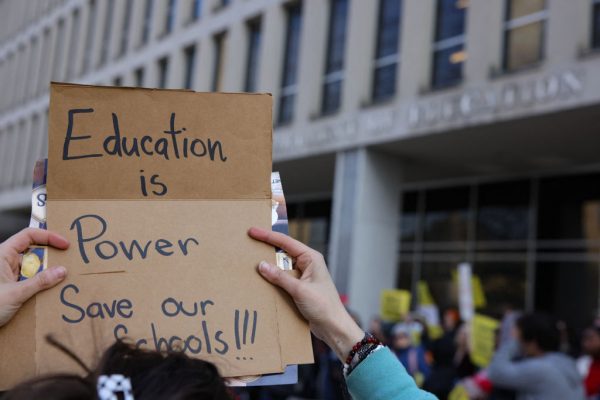 Education
is
Power
Save our
Schools!!!
EDUCATION